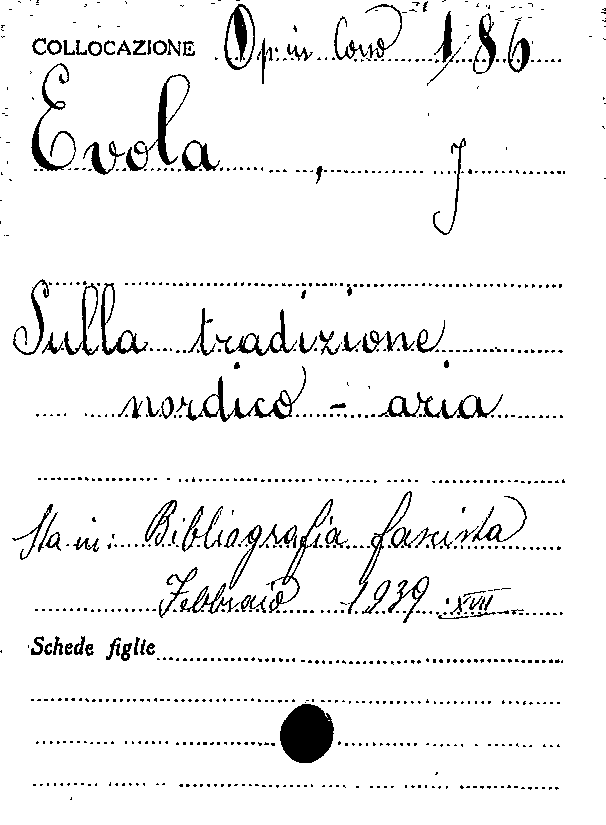 COLLOCAZIONE Op. in Cons 1/86
Evola , J.
Sulla tradizione
nordico - aria
Sta in: Bibliografia fascista
Febbraio 1939 XVII
Schede figlie